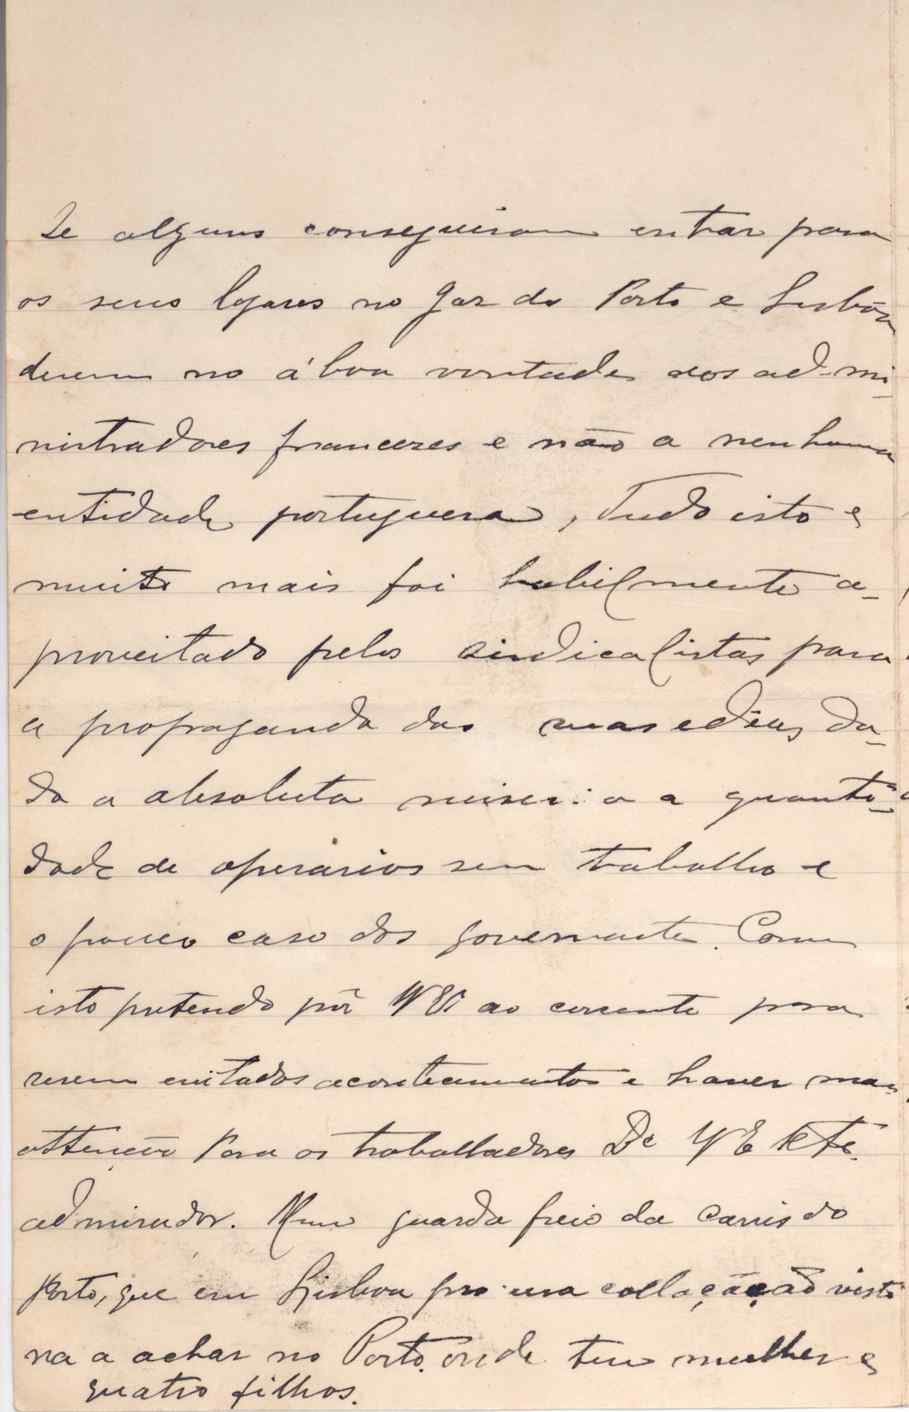 Se alguns conseguiram entrar para
os seus logares no gaz do Porto e Lisbôa
devem no á boa vontade dos admi-
nistradores francezes e não a nenhuma
entidade portugueza, Tudo isto e
muito mais foi habilmente a-
proveitado pelos sindicalistas para
a propaganda das suas edieas da-
da a absoluta miseria a quanti-
dade de operarios sem trabalho e
o pouco caso dos governante. Com
isto pretendo pôr V Eª ao corrente para
serem evitados acontecimentos e haver mais
attenção para os trabalhadores De V E
admirador. Um guarda freio da carris do
Porto, que em Lisboa procura collação visto
na a achar no Porto. onde tem mulher e
quatro filhos.